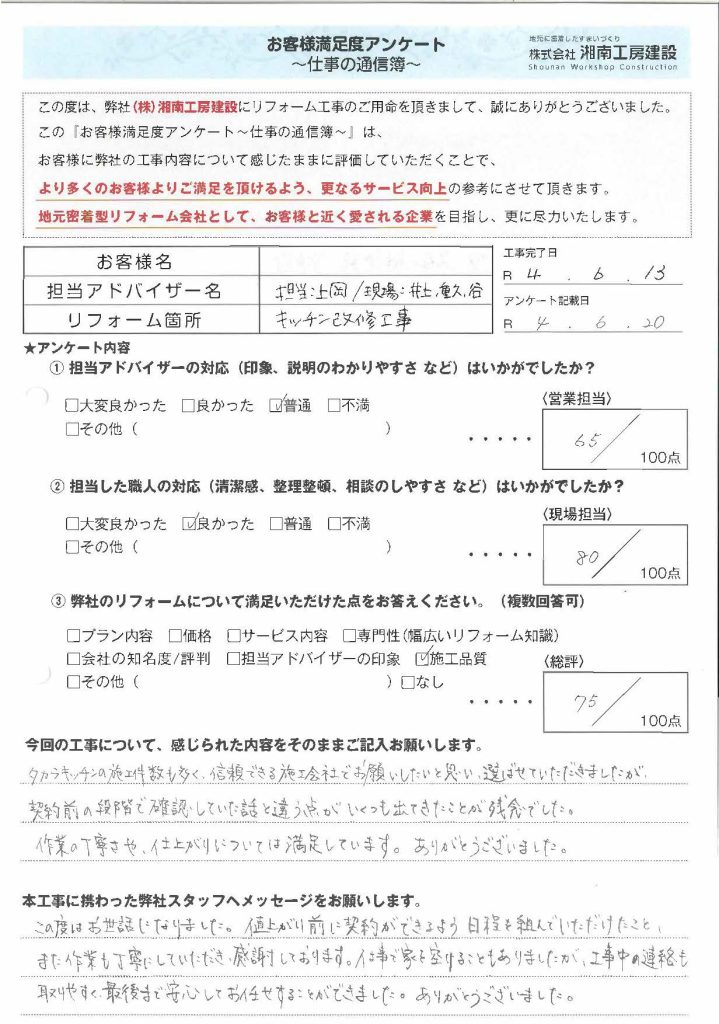 お客様満足度アンケート
～仕事の通信簿～
地元に密着したすまいづくり
株式会社 湘南工房建設
Shounan Workshop Construction
この度は、弊社(株)湘南工房建設にリフォーム工事のご用命を頂きまして、誠にありがとうございました。
この『お客様満足度アンケート～仕事の通信簿～』は、
お客様に弊社の工事内容について感じたままに評価していただくことで、
より多くのお客様よりご満足を頂けるよう、更なるサービス向上の参考にさせて頂きます。
地元密着型リフォーム会社として、お客様と近く愛される企業を目指し、更に尽力いたします。
お客様名
担当アドバイザー名 担当:上岡/現場:井上,重久,谷
リフォーム箇所 キッチン改修工事
工事完了日
R 4 . 6 . 13
アンケート記載日
R 4 . 6 . 20
★アンケート内容
① 担当アドバイザーの対応（印象、説明のわかりやすさ など）はいかがでしたか？
□大変良かった □良かった ☑普通 □不満
□その他（ ）
〈営業担当〉
・・・・・ 65/100点
② 担当した職人の対応（清潔感、整理整頓、相談のしやすさ など）はいかがでしたか？
□大変良かった ☑良かった □普通 □不満
□その他（ ）
〈現場担当〉
・・・・・ 80/100点
③ 弊社のリフォームについて満足いただけた点をお答えください。（複数回答可）
□プラン内容 □価格 □サービス内容 □専門性(幅広いリフォーム知識)
□会社の知名度/評判 □担当アドバイザーの印象 ☑施工品質
□その他（ ）□なし
〈総評〉
・・・・・ 75/100点
今回の工事について、感じられた内容をそのままご記入お願いします。
タカラキッチンの施工件数も多く、信頼できる施工会社でお願いしたいと思い、選ばせていただきましたが、
契約前の段階で確認していた話と違う点がいくつも出てきたことが残念でした。
作業の丁寧さや、仕上がりについては満足しています。ありがとうございました。
本工事に携わった弊社スタッフへメッセージをお願いします。
この度はお世話になりました。値上がり前に契約ができるよう日程を組んでいただけたこと、
また作業も丁寧にしていただき、感謝しております。仕事で家を空けることもありましたが、工事中の連絡も
取りやすく、最後まで安心してお任せすることができました。ありがとうございました。